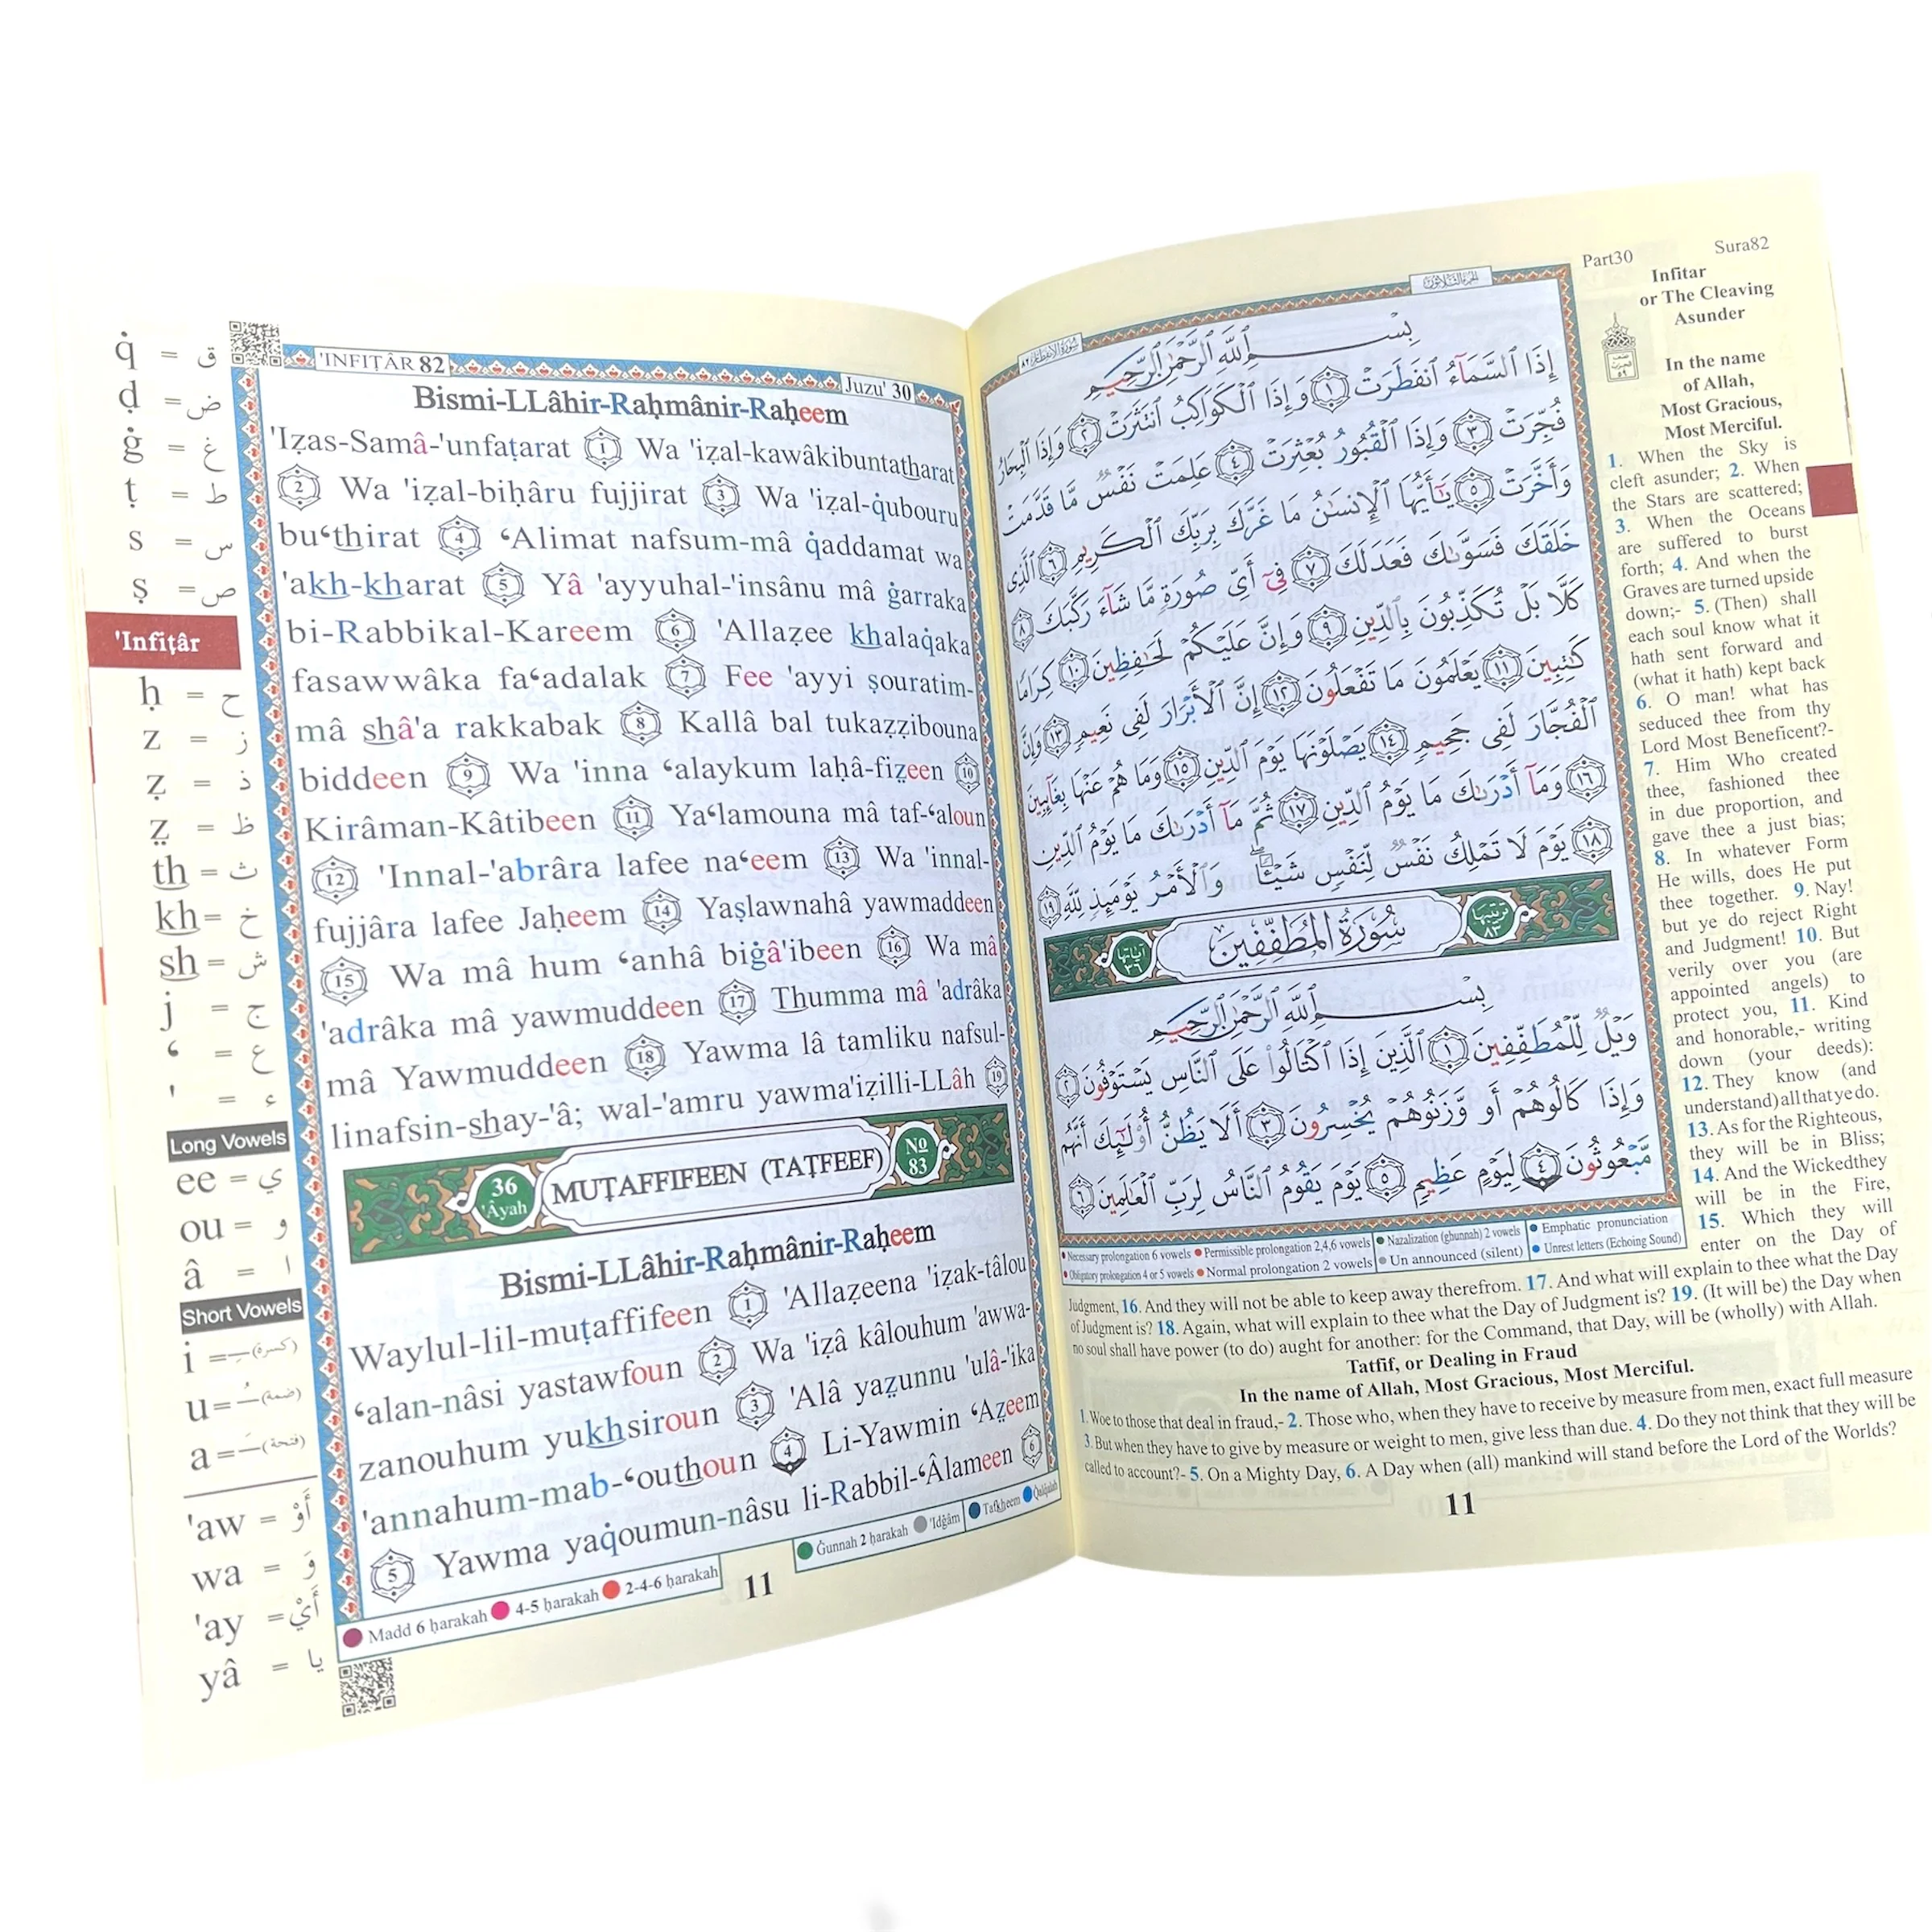 q̇ = ق
ḍ = ض
ġ = غ
ṭ = ط
s = س
ṣ = ص
'Infiṭâr
ḥ = ح
z = ز
ẓ = ذ
ẓ̤ = ظ
th = ث
kh = خ
sh = ش
j = ج
ʻ = ع
' = ء
Long Vowels
ee = ي
ou = و
â = ا
Short Vowels
i = ـِ (كسرة)
u = ـُ (ضمة)
a = ـَ (فتحة)
'aw = أَوْ
wa = وَ
'ay = أَيْ
yâ = يا
'INFIṬÂR 82
Juzu' 30
Bismi-LLâhir-Raḥmânir-Raḥeem
'Iẓas-Samâ-'unfaṭarat 1 Wa 'iẓal-kawâkibuntatharat
2 Wa 'iẓal-biḥâru fujjirat 3 Wa 'iẓal-q̇ubouru
buʻthirat 4 ʻAlimat nafsum-mâ q̇addamat wa
'akh-kharat 5 Yâ 'ayyuhal-'insânu mâ ġarraka
bi-Rabbikal-Kareem 6 'Allaẓee khalaq̇aka
fasawwâka faʻadalak 7 Fee 'ayyi ṣouratim-
mâ shâ'a rakkabak 8 Kallâ bal tukaẓẓibouna
biddeen 9 Wa 'inna ʻalaykum laḥâ-fiẓ̤een 10
Kirâman-Kâtibeen 11 Yaʻlamouna mâ taf-ʻaloun
12 'Innal-'abrâra lafee naʻeem 13 Wa 'innal-
fujjâra lafee Jaḥeem 14 Yaṣlawnahâ yawmaddeen
15 Wa mâ hum ʻanhâ biġâ'ibeen 16 Wa mâ
'adrâka mâ yawmuddeen 17 Thumma mâ 'adrâka
mâ Yawmuddeen 18 Yawma lâ tamliku nafsul-
linafsin-shay-'â; wal-'amru yawma'iẓilli-LLâh 19
36 'Âyah MUṬAFFIFEEN (TAṬFEEF) No 83
Bismi-LLâhir-Raḥmânir-Raḥeem
Waylul-lil-muṭaffifeen 1 'Allaẓeena 'iẓak-tâlou
ʻalan-nâsi yastawfoun 2 Wa 'iẓâ kâlouhum 'awwa-
zanouhum yukhsiroun 3 'Alâ yaẓ̤unnu 'ulâ-'ika
'annahum-mab-ʻouthoun 4 Li-Yawmin ʻAẓ̤eem
5 Yawma yaq̇oumun-nâsu li-Rabbil-ʻÂlameen 6
Madd 6 ḥarakah 4-5 ḥarakah 2-4-6 ḥarakah
11
Ġunnah 2 ḥarakah 'Idġâm Tafkheem Q̇alq̇alah
سُورَةُ الانفِطَارِ ٨٢
الجزء الثلاثون
بِسْمِ ٱللَّهِ ٱلرَّحْمَٰنِ ٱلرَّحِيمِ
إِذَا ٱلسَّمَآءُ ٱنفَطَرَتْ ١ وَإِذَا ٱلْكَوَاكِبُ ٱنتَثَرَتْ ٢ وَإِذَا ٱلْبِحَارُ
فُجِّرَتْ ٣ وَإِذَا ٱلْقُبُورُ بُعْثِرَتْ ٤ عَلِمَتْ نَفْسٌ مَّا قَدَّمَتْ
وَأَخَّرَتْ ٥ يَٰٓأَيُّهَا ٱلْإِنسَٰنُ مَا غَرَّكَ بِرَبِّكَ ٱلْكَرِيمِ ٦ ٱلَّذِى
خَلَقَكَ فَسَوَّىٰكَ فَعَدَلَكَ ٧ فِىٓ أَىِّ صُورَةٍ مَّا شَآءَ رَكَّبَكَ ٨
كَلَّا بَلْ تُكَذِّبُونَ بِٱلدِّينِ ٩ وَإِنَّ عَلَيْكُمْ لَحَٰفِظِينَ ١٠ كِرَامًا
كَٰتِبِينَ ١١ يَعْلَمُونَ مَا تَفْعَلُونَ ١٢ إِنَّ ٱلْأَبْرَارَ لَفِى نَعِيمٍ ١٣ وَإِنَّ
ٱلْفُجَّارَ لَفِى جَحِيمٍ ١٤ يَصْلَوْنَهَا يَوْمَ ٱلدِّينِ ١٥ وَمَا هُمْ عَنْهَا بِغَآئِبِينَ
١٦ وَمَآ أَدْرَىٰكَ مَا يَوْمُ ٱلدِّينِ ١٧ ثُمَّ مَآ أَدْرَىٰكَ مَا يَوْمُ ٱلدِّينِ
١٨ يَوْمَ لَا تَمْلِكُ نَفْسٌ لِّنَفْسٍ شَيْـًٔا ۖ وَٱلْأَمْرُ يَوْمَئِذٍ لِّلَّهِ ١٩
ترتيبها ٨٣ سُورَةُ المُطَفِّفِينَ آياتها ٣٦
بِسْمِ ٱللَّهِ ٱلرَّحْمَٰنِ ٱلرَّحِيمِ
وَيْلٌ لِّلْمُطَفِّفِينَ ١ ٱلَّذِينَ إِذَا ٱكْتَالُوا۟ عَلَى ٱلنَّاسِ يَسْتَوْفُونَ ٢
وَإِذَا كَالُوهُمْ أَو وَّزَنُوهُمْ يُخْسِرُونَ ٣ أَلَا يَظُنُّ أُو۟لَٰٓئِكَ أَنَّهُم
مَّبْعُوثُونَ ٤ لِيَوْمٍ عَظِيمٍ ٥ يَوْمَ يَقُومُ ٱلنَّاسُ لِرَبِّ ٱلْعَٰلَمِينَ ٦
Necessary prolongation 6 vowels Permissible prolongation 2,4,6 vowels Nazalization (ghunnah) 2 vowels Emphatic pronunciation
Obligatory prolongation 4 or 5 vowels Normal prolongation 2 vowels Un announced (silent) Unrest letters (Echoing Sound)
Part30 Sura82
Infitar
or The Cleaving
Asunder
In the name
of Allah,
Most Gracious,
Most Merciful.
1. When the Sky is
cleft asunder; 2. When
the Stars are scattered;
3. When the Oceans
are suffered to burst
forth; 4. And when the
Graves are turned upside
down;- 5. (Then) shall
each soul know what it
hath sent forward and
(what it hath) kept back
6. O man! what has
seduced thee from thy
Lord Most Beneficent?-
7. Him Who created
thee, fashioned thee
in due proportion, and
gave thee a just bias;
8. In whatever Form
He wills, does He put
thee together. 9. Nay!
but ye do reject Right
and Judgment! 10. But
verily over you (are
appointed angels) to
protect you, 11. Kind
and honorable,- writing
down (your deeds):
12. They know (and
understand) all that ye do.
13. As for the Righteous,
they will be in Bliss;
14. And the Wickedthey
will be in the Fire,
15. Which they will
enter on the Day of
Judgment, 16. And they will not be able to keep away therefrom. 17. And what will explain to thee what the Day
of Judgment is? 18. Again, what will explain to thee what the Day of Judgment is? 19. (It will be) the Day when
no soul shall have power (to do) aught for another: for the Command, that Day, will be (wholly) with Allah.
Tatfif, or Dealing in Fraud
In the name of Allah, Most Gracious, Most Merciful.
1. Woe to those that deal in fraud,- 2. Those who, when they have to receive by measure from men, exact full measure
3. But when they have to give by measure or weight to men, give less than due. 4. Do they not think that they will be
called to account?- 5. On a Mighty Day, 6. A Day when (all) mankind will stand before the Lord of the Worlds?
11